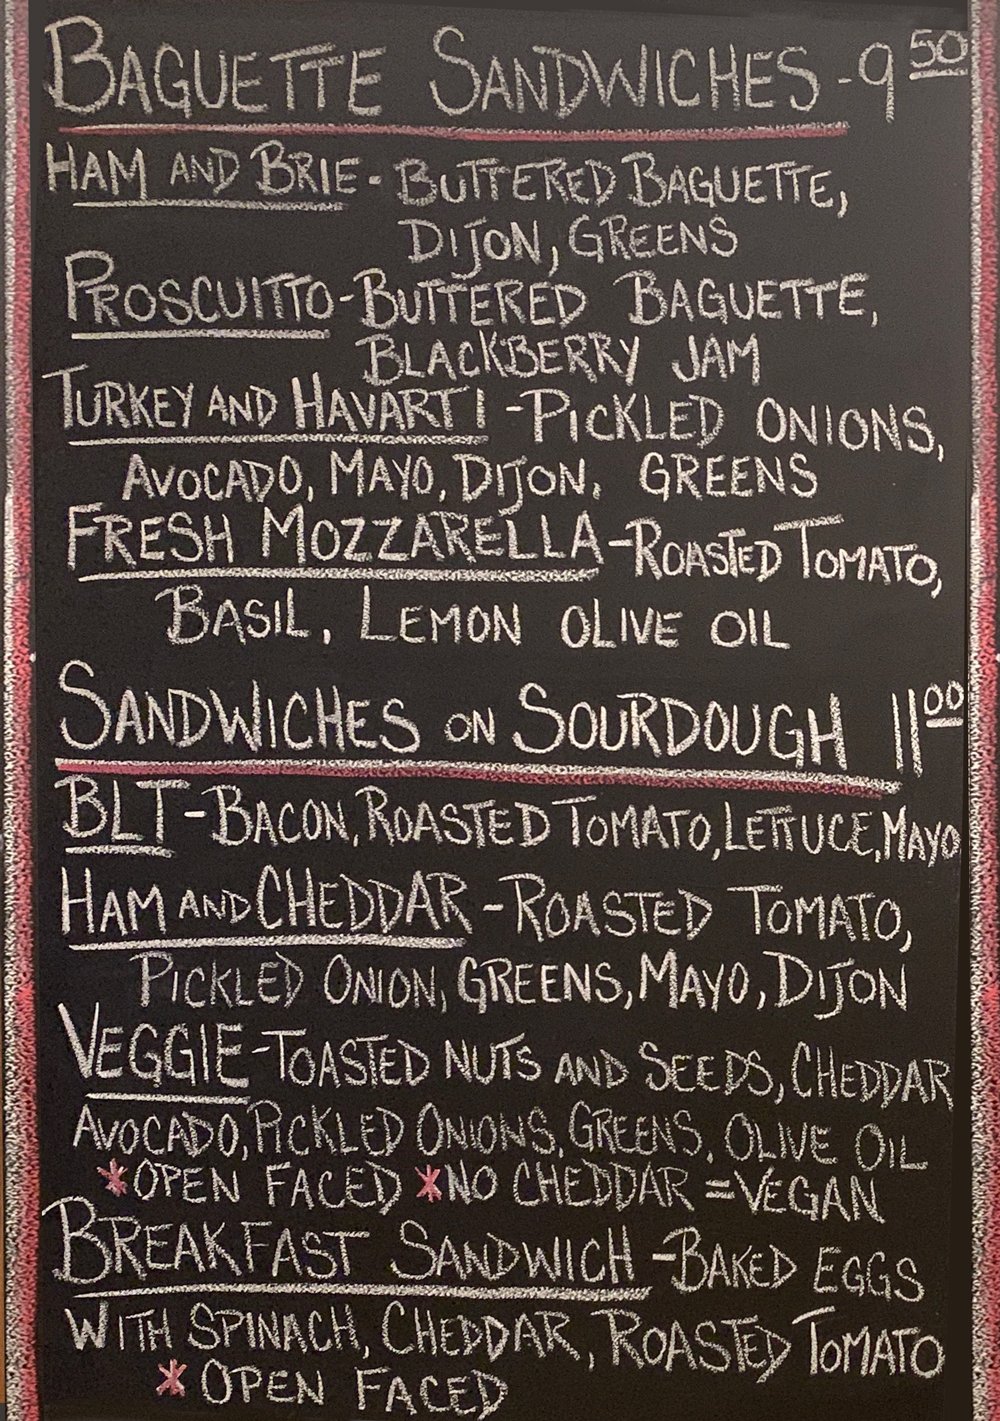 BAGUETTE SANDWICHES - 9 50
HAM AND BRIE - BUTTERED BAGUETTE,
DIJON, GREENS
PROSCUITTO - BUTTERED BAGUETTE,
BLACKBERRY JAM
TURKEY AND HAVARTI - PICKLED ONIONS,
AVOCADO, MAYO, DIJON, GREENS
FRESH MOZZARELLA - ROASTED TOMATO,
BASIL, LEMON OLIVE OIL
SANDWICHES ON SOURDOUGH 11 00
BLT - BACON, ROASTED TOMATO, LETTUCE, MAYO
HAM AND CHEDDAR - ROASTED TOMATO,
PICKLED ONION, GREENS, MAYO, DIJON
VEGGIE - TOASTED NUTS AND SEEDS, CHEDDAR
AVOCADO, PICKLED ONIONS, GREENS, OLIVE OIL
*OPEN FACED *NO CHEDDAR = VEGAN
BREAKFAST SANDWICH - BAKED EGGS
WITH SPINACH, CHEDDAR, ROASTED TOMATO
* OPEN FACED